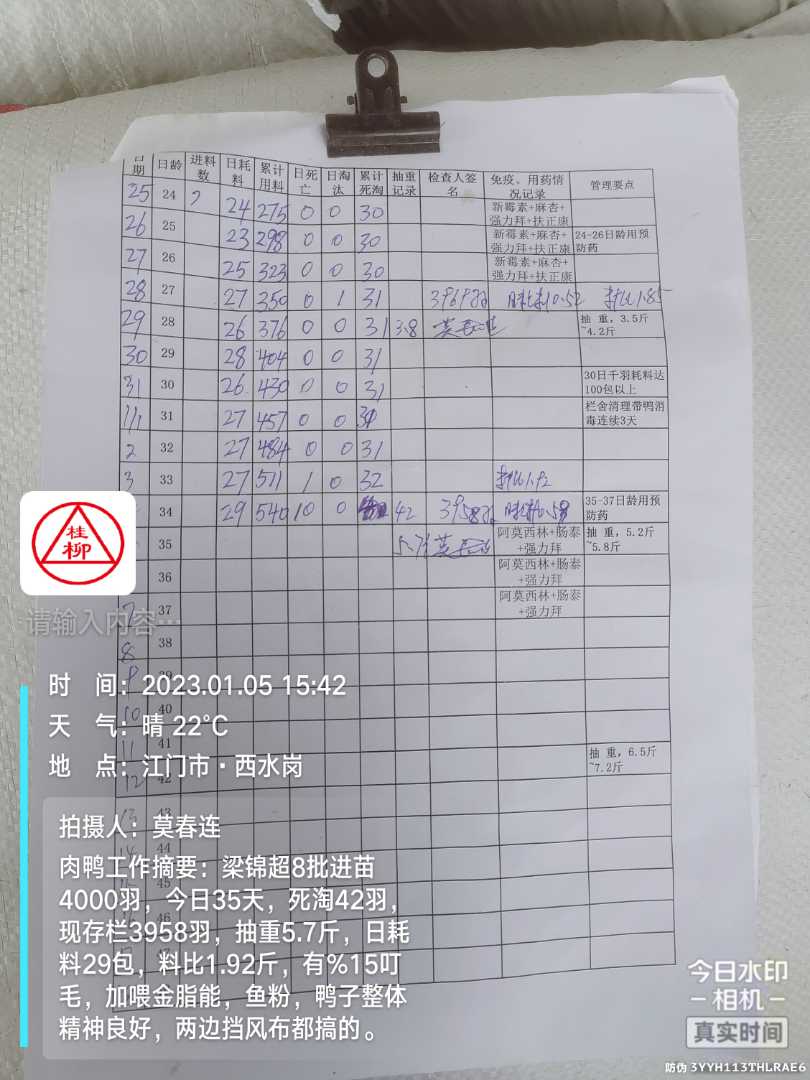 日期 日龄 进料数 日耗料 累计用料 日死亡 日淘汰 累计死淘 抽重记录 检查人签名 免疫、用药情况记录 管理要点
25 24 24 275 0 0 30 新霉素+麻杏+强力拜+扶正康
26 25 23 298 0 0 30 新霉素+麻杏+强力拜+扶正康 24-26日龄用预防药
27 26 25 323 0 0 30 新霉素+麻杏+强力拜+扶正康
28 27 27 350 0 1 31 3969羽 0.52 料比1.85
29 28 26 376 0 0 31 3.8 莫春连 抽 重，3.5斤~4.2斤
30 29 28 404 0 0 31
31 30 26 430 0 0 31 30日千羽耗料达100包以上
1/1 31 27 457 0 0 31 栏舍清理带鸭消毒连续3天
2 32 27 484 0 0 31
3 33 27 511 1 0 32 料比1.92
34 29 540 10 0 42 3958羽 0.58 35-37日龄用预防药
35 5.7斤 莫春连 阿莫西林+肠泰+强力拜 抽 重，5.2斤~5.8斤
36 阿莫西林+肠泰+强力拜
7 37 阿莫西林+肠泰+强力拜
8 38
9 39
10 40
11 41 抽 重，6.5斤~7.2斤
12 42
13 43
14 44
15 45
46
桂柳
请输入内容…
时 间：2023.01.05 15:42
天 气：晴 22℃
地 点：江门市·西水岗
拍摄人：莫春连
肉鸭工作摘要：梁锦超8批进苗
4000羽，今日35天，死淘42羽，
现存栏3958羽，抽重5.7斤，日耗
料29包，料比1.92斤，有%15叮
毛，加喂金脂能，鱼粉，鸭子整体
精神良好，两边挡风布都搞的。
今日水印
-相机-
真实时间
防伪 3YYH113THLRAE6